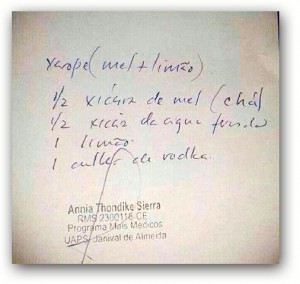 xarope (mel + limão)
1/2 xícara de mel (chá)
1/2 xícar de agua fervida
1 limão
1 culher de vodka.
Annia Thondike Sierra
RMS 2300118-CE
Programa Mais Médicos
UAPS: Janival de Almeida